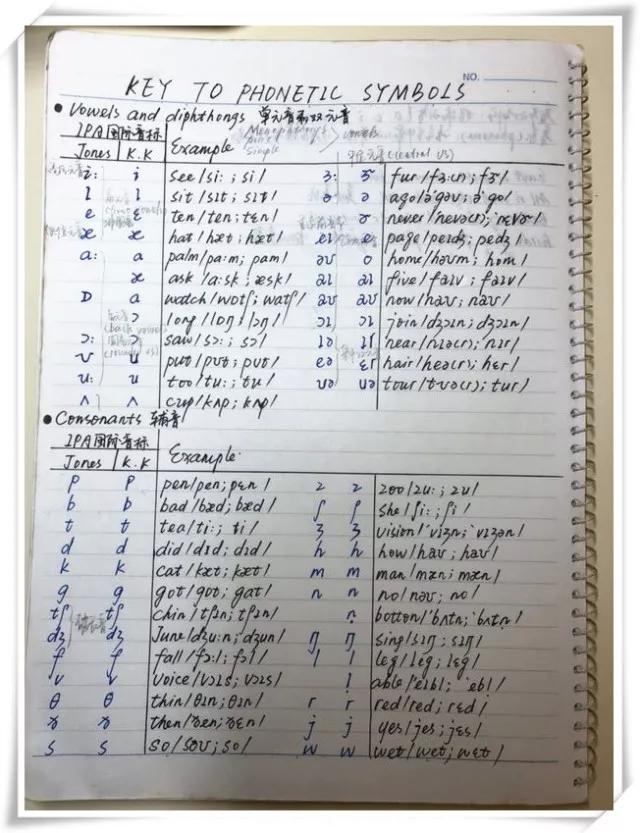 NO.
KEY TO PHONETIC SYMBOLS
● Vowels and diphthongs 单元音和双元音
IPA国际音标 vowels
Jones K.K Example Simple 中元音(central vs)
i: i see/si: ; si/ ɜ: ɝ fur/fɜ:(r); fɝ/
ɪ ɪ sit/sɪt; sɪt/ ə ə ago/ə'gəʊ; ə'go/
e ɛ ten/ten; tɛn/ ə ɚ never/nevə(r); nɛvɚ/
æ æ hat/hæt; hæt/ eɪ e page/peɪdʒ; pedʒ/
a: a palm/pa:m; pam/ əʊ o home/həʊm; hom/
æ ask/a:sk; æsk/ aɪ aɪ five/faɪv; faɪv/
ɒ a watch/wɒtʃ; watʃ/ aʊ aʊ now/naʊ; naʊ/
ɔ long/lɒŋ; lɔŋ/ ɔɪ ɔɪ join/dʒɔɪn; dʒɔɪn/
ɔ: ɔ saw/sɔ: ; sɔ/ ɪə ɪr near/nɪə(r); nɪr/
ʊ ʊ put/pʊt; pʊt/ eə ɛr hair/heə(r); hɛr/
u: u too/tu: ; tu/ ʊə ʊə tour/tʊə(r); tur/
ʌ ʌ cup/kʌp; kʌp/
● Consonants 辅音
IPA国际音标
Jones K.K Example
p p pen/pen; pɛn/ z z zoo/zu: ; zu/
b b bad/bæd; bæd/ ʃ ʃ she/ʃi: ; ʃi/
t t tea/ti: ; ti/ ʒ ʒ vision/'vɪʒn; 'vɪʒən/
d d did/dɪd; dɪd/ h h how/haʊ; haʊ/
k k cat/kæt; kæt/ m m man/mæn; mæn/
g g got/gɒt; gat/ n n no/nəʊ; no/
tʃ tʃ chin/tʃɪn; tʃɪn/ n̩ botton/'bʌtn; 'bʌtn̩/
dʒ dʒ June/dʒu:n; dʒun/ ŋ ŋ sing/sɪŋ; sɪŋ/
f f fall/fɔ:l; fɔl/ l l leg/leg; lɛg/
v v voice/vɔɪs; vɔɪs/ l̩ able/'eɪbl; 'ebl̩/
θ θ thin/θɪn; θɪn/ r r red/red; rɛd/
ð ð then/ðen; ðɛn/ j j yes/jes; jɛs/
s s so/səʊ; so/ w w wet/wet; wɛt/